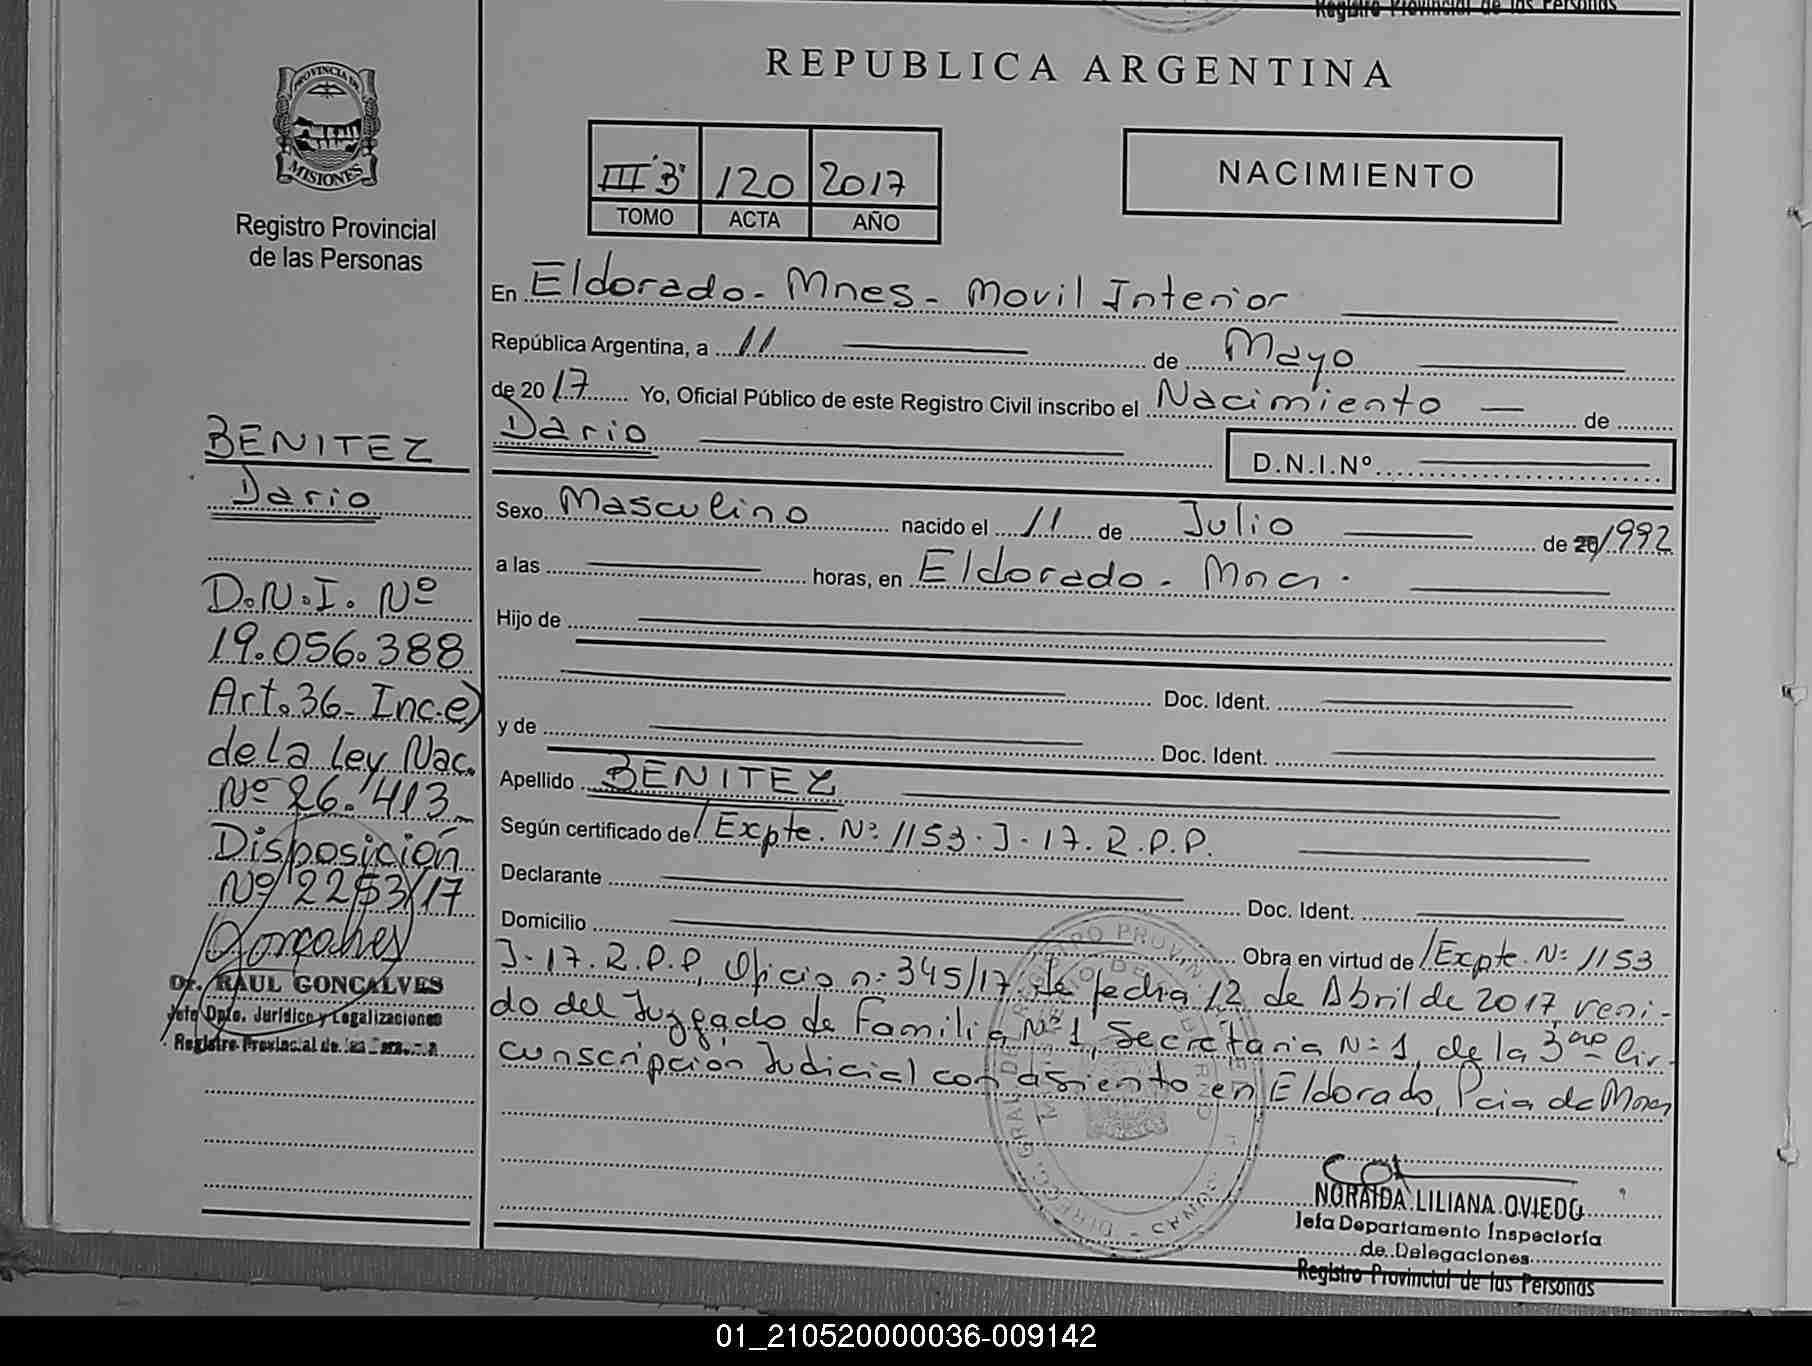 Registro Provincial de las Personas
REPUBLICA ARGENTINA
PROVINCIA DE
MISIONES
Registro Provincial
de las Personas
III "B" 120 2017
TOMO ACTA AÑO
NACIMIENTO
En Eldorado - Mnes - Movil Interior
República Argentina, a 11 de Mayo
de 20 17 Yo, Oficial Público de este Registro Civil inscribo el Nacimiento de
Dario D.N.I.Nº
Sexo Masculino nacido el 11 de Julio de 20/1992
a las horas, en Eldorado - Mnes.
Hijo de
Doc. Ident.
y de Doc. Ident.
Apellido BENITEZ
Según certificado de/ Expte. Nº 1153. J. 17. R.P.P.
Declarante Doc. Ident.
Domicilio Obra en virtud de/ Expte. Nº 1153
J. 17. R.P.P, Oficio nº 345/17 de fecha 12 de Abril de 2017, reni-
do del Juzgado de Familia Nº 1, Secretaria Nº 1, de la 3era Cir-
cunscripción Judicial con asiento en Eldorado, Pcia de Mnes
BENITEZ
Dario
D.N.I. Nº
19.056.388
Art. 36 - Inc. e)
de la Ley Nac.
Nº 26.413
Disposición
Nº 2253/17
Dr. RAUL GONCALVES
Jefe Dpto. Jurídico y Legalizaciones
Registro Provincial de las Personas
NORAIDA LILIANA OVIEDO
Jefa Departamento Inspectoría
de Delegaciones
Registro Provincial de las Personas
01_210520000036-009142